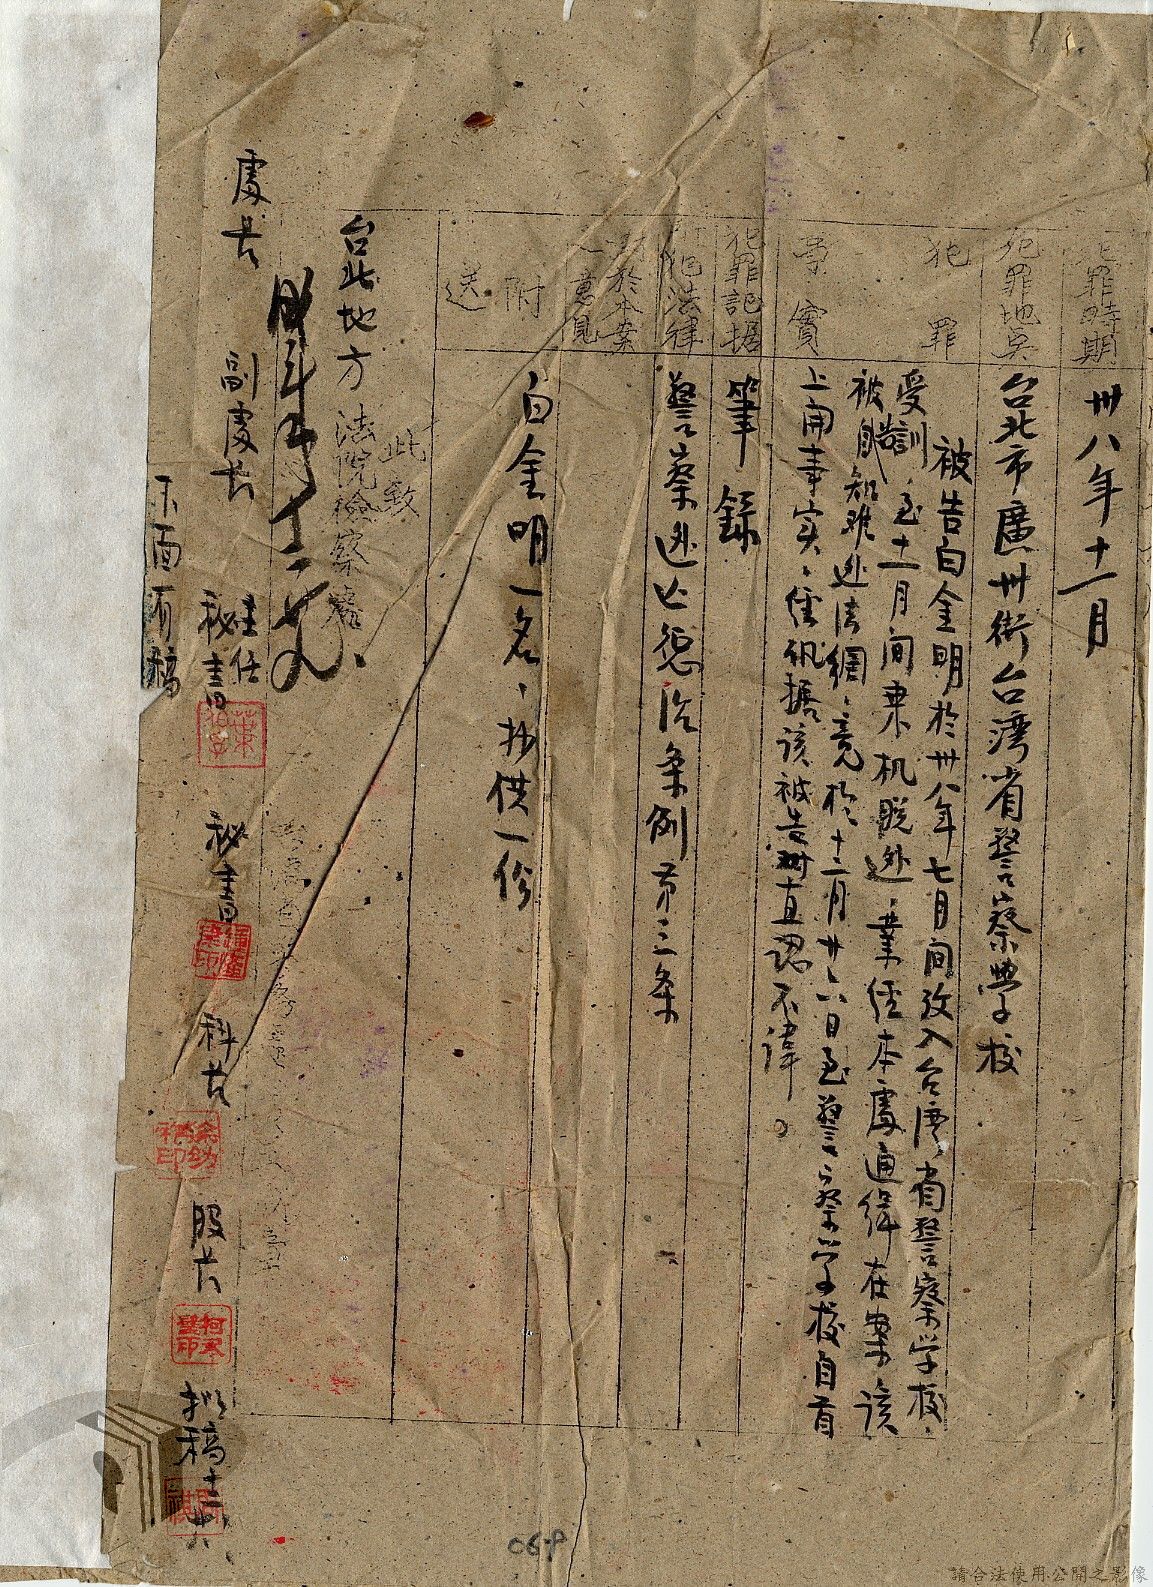 犯罪時期
卅八年十一月
犯罪地點
台北市廣州街台灣省警察學校
犯罪
事實
被告白金明於卅八年七月間攷入台灣省警察學校
受訓、至十一月間乘机脫逃、業經本處通緝在案、該
被自知难逃法網、竟於十二月廿六日至警察学校自首
上開事实、經訊據該被告直認不諱。
犯罪記据
筆錄
所犯法律
警察逃亡惩治条例第三条
對於本案
之意見
附
送
白金明一名、抄供一份
此致
台北地方法院檢察
處長
副處長
主任
秘書
秘書
科長
股長
拟稿
十二 廿六
下面有稿
069
請合法使用公開之影像